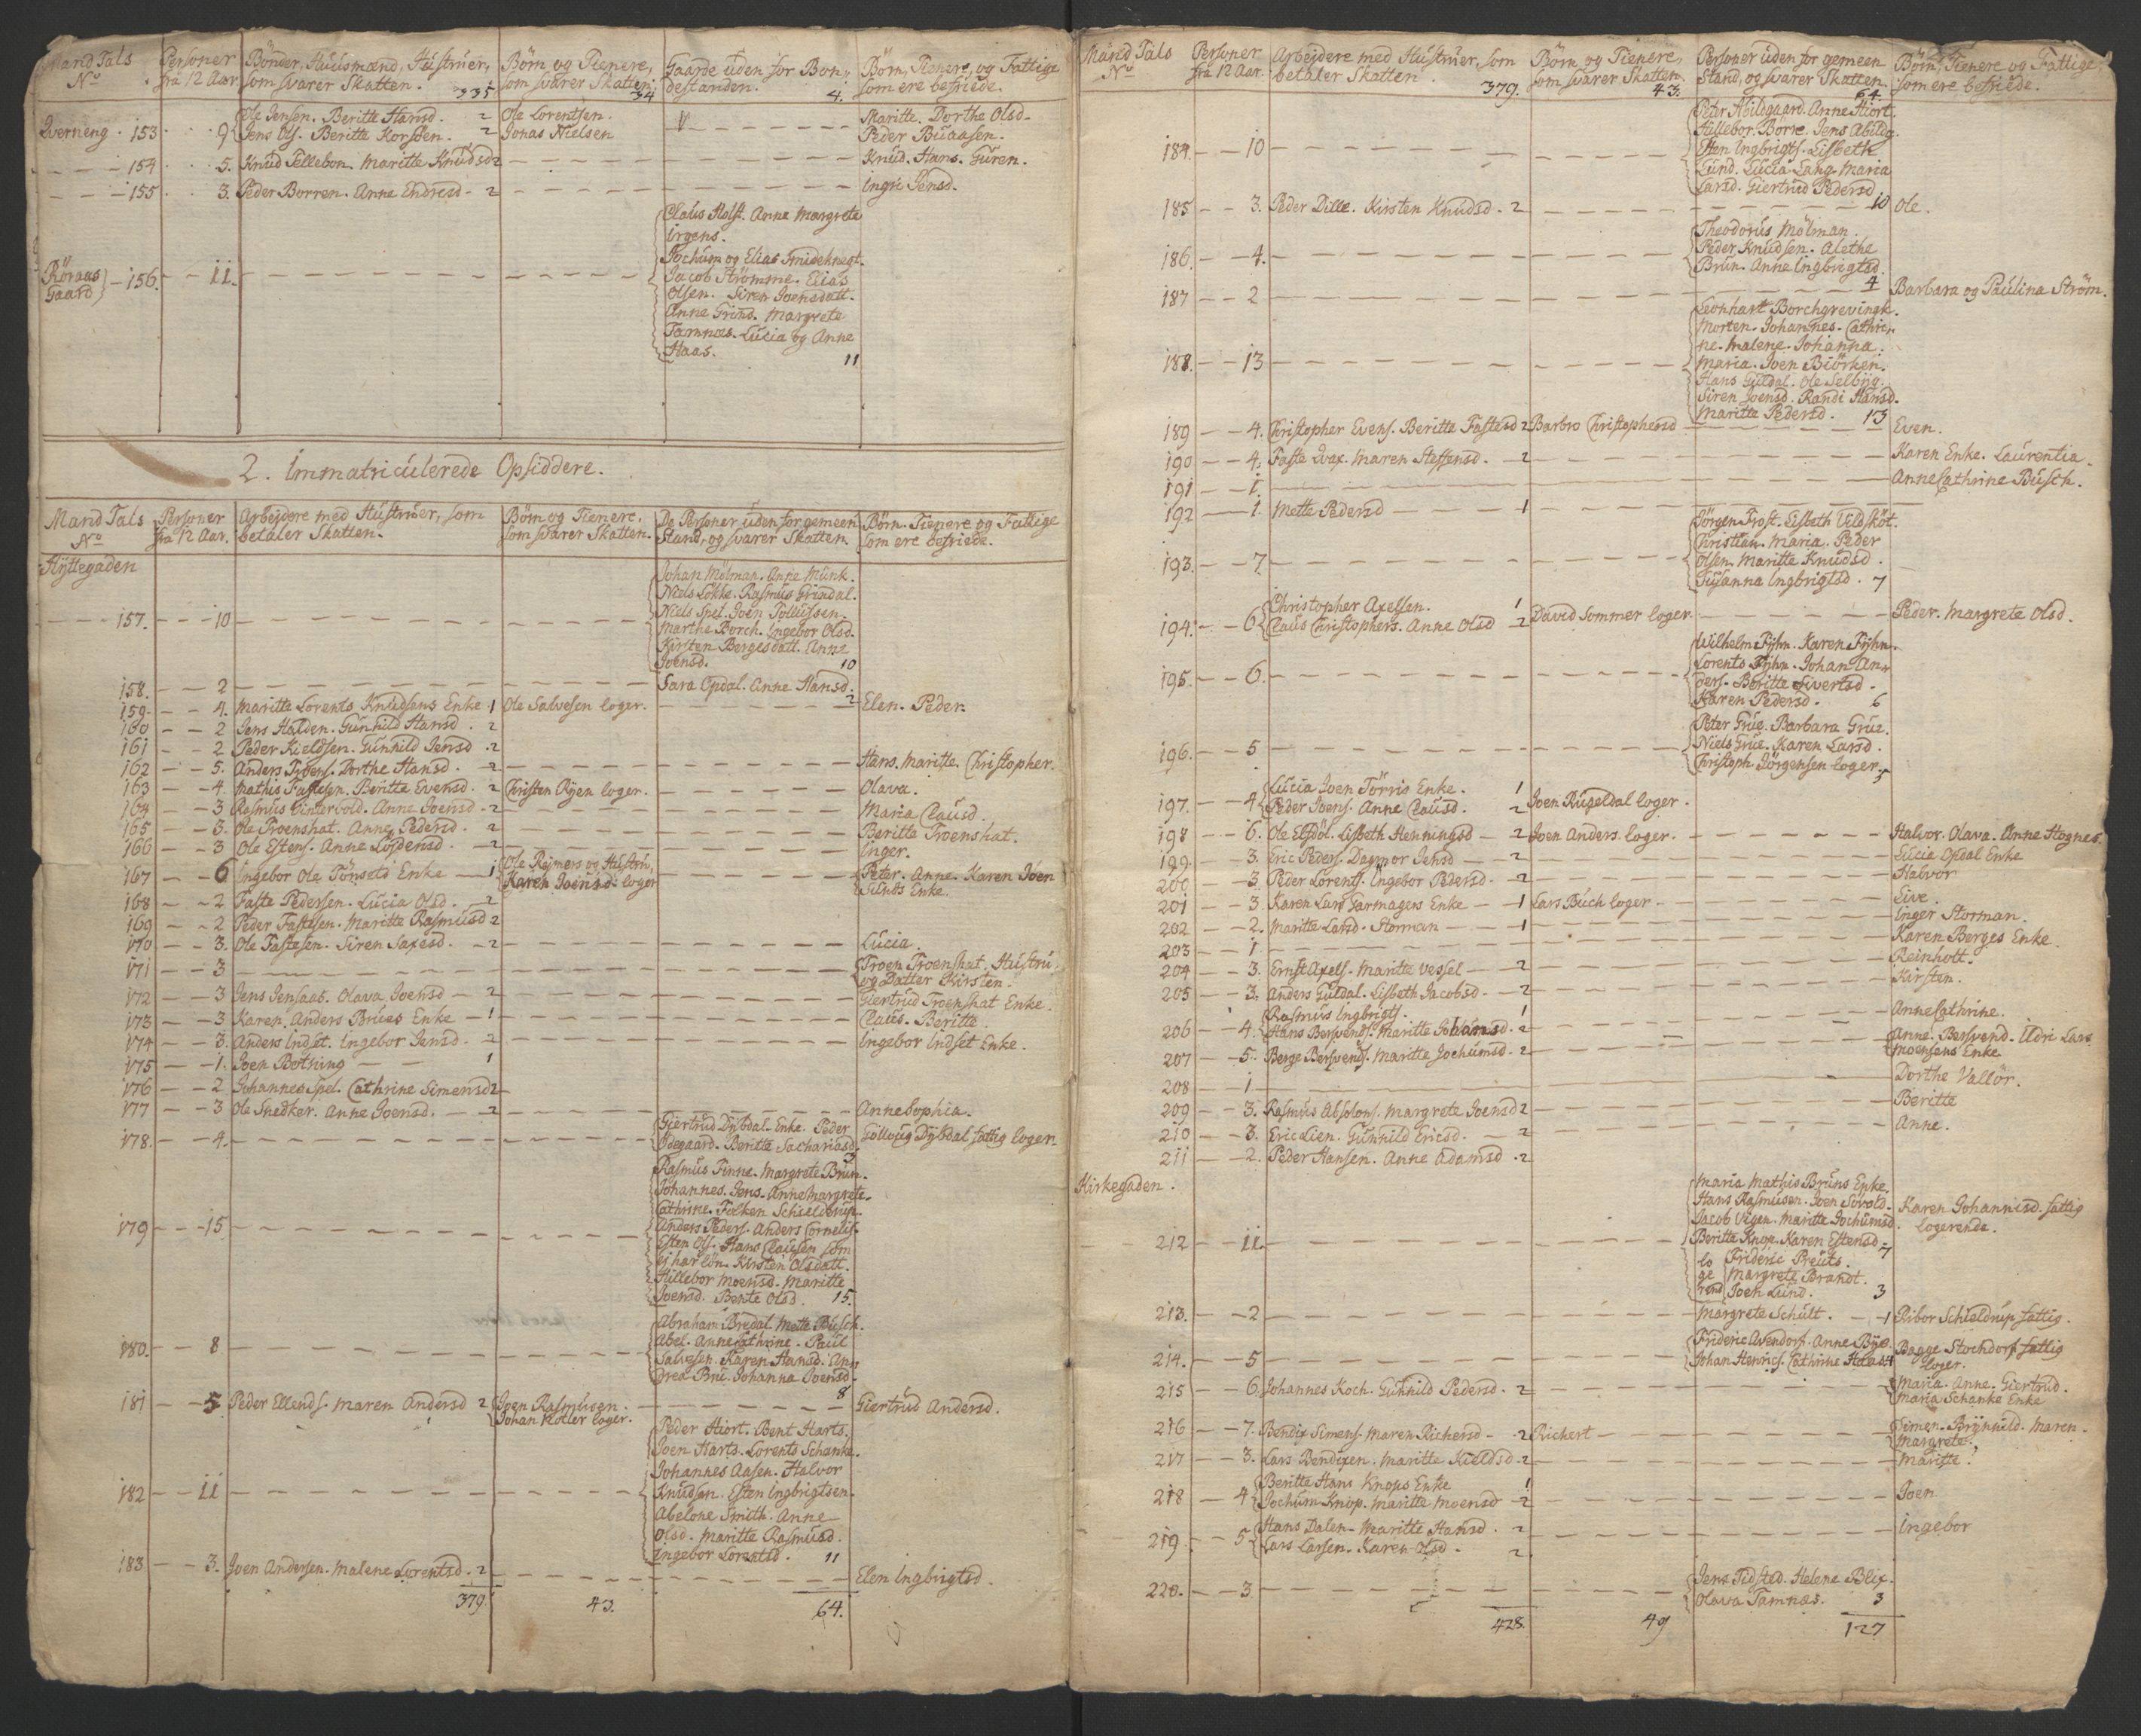 Mand Tals No. Personer fra 12 Aar. Bönder, Huusmænd, Hustruer, som svarer Skatten. 335 Börn og Tienere, som svarer Skatten. 34 Gaarde uden for Bondestanden. 4. Börn, Tienere, og Fattige som ere befriede.
Qverneng. 153 9 Ole Jensen. Beritte Hansd. 2 Ole Lorentsen. Maritte. Dorthe Olsd.
Jens Ols. Beritte Korsben. 2 Jonas Nielsen Peder Buaasen.
154 5. Knud Tellebon. Maritte Knudsd 2 Knud. Hans. Guren.
155 3. Peder Borren. Anne Endresd. 2 Ingri Jensd.
Claus Holst. Anne Margrete
Irgens.
Jochum og Elias Smideknegt.
Röraas Gaard 156. 11. Jacob Strömme. Elias
Olsen. Siren Joensdatt.
Anne Grind. Margrete
Tamnæs. Lucia og Anne
Haas. 11
2. Immatriculerede Opsiddere.
Mand Tals No. Personer fra 12 Aar. Arbejdere med Hustruer, som betaler Skatten. Börn og Tienere, som svarer Skatten. De Personer uden for gemeen Stand, og svarer Skatten. Börn. Tienere og Fattige som ere befriede.
Hyttegaden
Johan Mölman. Anne Munk.
Niels Lökke. Rasmus Grindal.
157. 10 Niels Spel. Joen Tollufsen.
Marthe Borch. Ingebor Olsd.
Kirsten Bergesdatt. Anne
Joensd. 10
158. 2 Sara Opdal. Anne Hansd. 2
159. 4. Maritte Lorents Knudsens Enke 1 Ole Salvesen loger. Elen. Peder.
160 2 Jens Halden. Gunhild Hansd. 2
161 2 Peder Kieldsen. Gunhild Jensd. 2
162 5. Anders Troens. Dorthe Hansd. 2 Hans. Maritte. Christopher.
163 4. Mathis Fastesen. Beritte Evensd. 2 Christen Ryen loger. Olava.
164 3 Rasmus Vintervold. Anne Joensd. 2 Maria Clausd.
165 3. Ole Troenshat. Anne Pedersd. 2 Beritte Troenshat.
166 3 Ole Estens. Anne 2 Inger.
167 6 Ingebor Ole Tönseld Enke 1 Ole Rejmers og Hustru, Karen Joensd. loger Peter. Anne. Karen Joen Enke.
168 2 Faste Pedersen. Lucia Olsd. 2
169 2 Peder Fastesen. Maritte Rasmusd 2
170 3. Ole Fastesen. Siren Saxesd. 2 Lucia.
171 3 Troen Troenshat. Hustru. og Datter Kirsten.
172 3 Jens Jensaas. Olava Joensd 2 Giertrud Troenshat Enke.
173 3 Karen Anders Brues Enke 1 Claus. Beritte.
174 3. Anders Indset. Ingebor Jensd. 2 Ingebor Indset Enke.
175 1. Joen Botning 1
176 2 Johannes Spel. Cathrine Simensd 2
177 3 Ole Snedker. Anne Joensd. 2 Anne Sophia.
Giertrud Dybdal. Enke. Peder
178. 4. Ödegaard. Beritte Sachariasd 3 Sollvug Dybdal fattig loger.
Rasmus Finne. Margrete Brun.
Johannes. Jens. Anne Margrete.
Cathrine. Folken Schielderup.
179 15 Anders Peders. Anders Cornelis.
Esten Ols. Hans Clausen som
ej har lön. Kirsten Olsdatt.
Hillebor Moensd. Maritte
Joensd. Bente Olsd. 15.
Abraham Bredal. Mette Busch.
Abel. Anne Cathrine. Paul
180. 8 Salvesen. Karen Hansd. Andrea Bru. Johanna Joensd. 8
181 5 Peder Ellends. Maren Andersd 2 Joen Rasmusen. Johan Koller loger. Giertrud Andersd.
Peder Hiort. Bent Harts.
Joen Harts. Lorents Schanke.
Johannes Aasen. Halvor
182 11 Knudsen. Esten Ingbrigtsen.
Abelone Smith. Anne
Olsd. Maritte Rasmusd.
Ingebor Lorentsd. 11
183 3. Joen Andersen. Malene Lorentsd. 2 Elen Ingbrigtsd.
379 43. 64.
Mand Tals No. Personer fra 12 Aar. Arbejdere med Hustruer, som betaler Skatten. 379. Börn og Tienere, som svarer Skatten. 43. Personer uden for gemeen Stand, og svarer Skatten. 64. Börn, Tienere og Fattige, som ere befriede.
Peter Hiort.
Hillebor. Börre. Jens Abildg.
184. 10 Sten Ingbrigts. Lisbeth
Lund. Lucia Lang. Maria
Larsd. Giertrud Pedersd 10
185 3. Peder Dille. Kirsten Knudsd. 2 Ole.
Theodorus Mölman.
186. 4. Peder Knudsen. Alethe
Brun. Anne Ingbrigtsd. 4
187 2 Barbara og Paulina Ström.
Leonhart Borchgrevingk.
Morten. Johannes. Cathrine. Malene. Johanna.
188. 13 Maria. Joen Biörken.
Hans Guldal. Ole Selbyg.
Siren Joensd. Randi Hansd.
Maritte Pedersd. 13
189 4. Christopher Evens. Beritte Fastesd 2 Barbro Christophersd Even.
190 4. Faste Qvax. Maren Steffensd. 2 Karen Enke. Laurentia.
191 1. Anne Cathrine Busch.
192 1. Mette Pedersd 1
Jörgen Frost. Lisbeth Vildsköt.
Christian. Maria. Peder
193. 7. Olsen. Maritte Knudsd.
Susanna Ingbrigtsd. 7
194. 6 Christopher Axelsen. 1
Claus Christophers. Anne Olsd 2 David Sommer loger Peder. Margrete Olsd.
Wilhelm Fyhn. Karen Fyhn.
195. 6. Lorents Fyhn. Johan Anders. Beritte Sivertsd.
Karen Pedersd. 6
Peter Grue. Barbara Grue.
196. 5 Niels Grue. Karen Larsd.
Christoph Jörgensen loger. 5
197. 4 Lucia Joen Törris Enke. 1
Peder Joens. Anne Clausd. 2 Joen Rugeldal loger.
198 6. Ole Elsdöl. Lisbeth Henningsd 2 Joen Anders. loger. Halvor. Olava. Anne Hognes.
199. 3. Eric Peders. Dagmor Jensd 2 Lucia Opdal Enke
200 3. Peder Lorents. Ingebor Pedersd. 2 Halvor
201 3. Karen Lars Garmagers Enke 1 Lars Buch loger Live.
202 2. Maritte Larsd. Storman 1 Inger Storman.
203 1 Karen Berges Enke.
204 3. Ernst Axels. Maritte Vessel 2 Reinholt.
205 3. Anders Guldal. Lisbeth Jacobsd. 2 Kirsten.
206 4. Rasmus Ingbrigts. 1
Hans Bersvends. Maritte Johansd. 2 Anne Cathrine.
207 5. Berge Bersvends. Maritte Jochumsd. 2 Anne. Bersvend. Ildri Lars Moensens Enke.
208 1 Dorthe Vallör.
209 3. Rasmus Absolons. Margrete Joensd 2 Beritte
210 3. Eric Lien. Gunhild Ericsd. 2 Anne.
211 2. Peder Hansen. Anne Adamsd. 2
Kirkegaden.
Maria Mathis Bruns Enke.
Hans Rasmusen. Joen Sörold. Karen Johannisd. fattig
Jacob Vigen. Maritte Jochumsd. logerende.
212 11. Beritte Knop. Karen Estensd. 7
logerend Frideric Preuts.
Margrete Brandt.
Joen Lund. 3
213. 2 Margrete Schult. 1 Ribor Schieldrup fattig.
214. 5 Frideric Avendorf. Anne Bye.
Johan Henrics. Cathrine Haas. 4 Bagge Stochdorf fattig loger.
215 6. Johannes Koch. Gunhild Pedersd. 2 Maria. Anne. Giertrud. Maria Schanke Enke
216 7. Bendix Simens. Maren Richersd. 2 Richert Simen. Brynhild. Maren. Margrete.
217 3. Lars Bendixen. Maritte Kieldsd. 2 Maritte.
218 4 Beritte Hans Knops Enke 1
Jochum Knop. Maritte Moensd 2 Joen
219. 5 Hans Dalen. Maritte Hansd. 2
Lars Larsen. Karen Olsd. 2 Ingebor
220. 3 Jens Tidsted. Helene Blix.
Olava Tamnæs. 3
428. 49 127